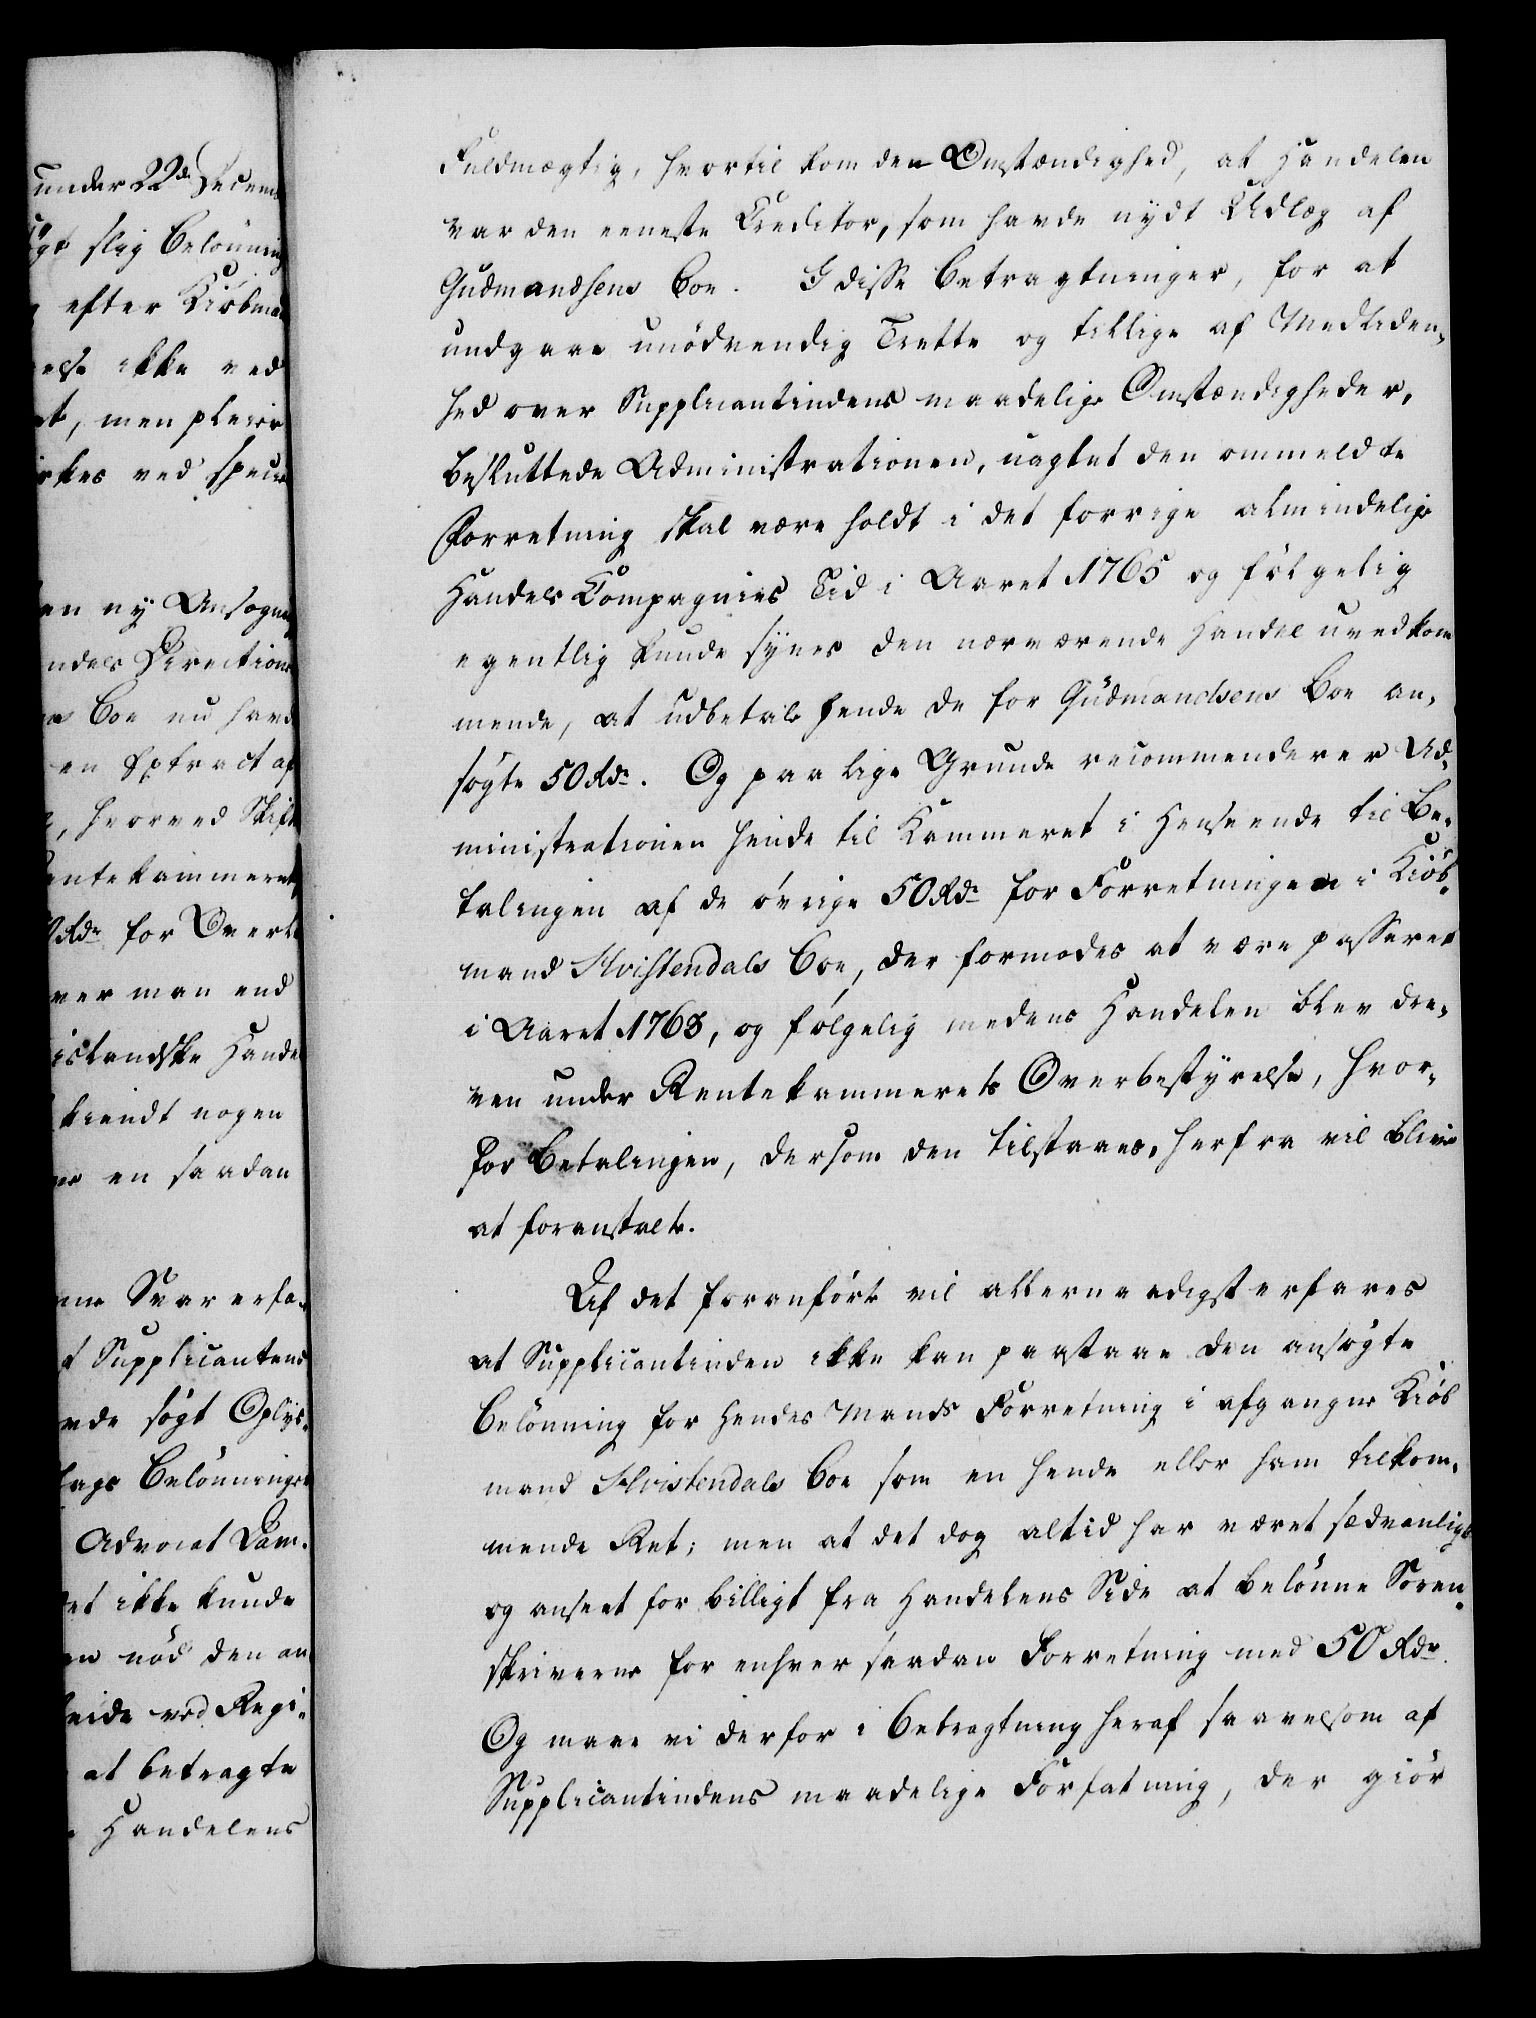 under 22de Decem
gt slig Belönning
efter Kiöbma
else ikke ved
t, men pleier
rkes ved specie
en ny Ansøgn
ndels Direction
Boe nu havd
en Extract af
, hvorved Skift
entekammeret
Rdr for Overte
ver man end
islandske Hande
kiendt nogen
en saadan
Svar erfa-
t Supplicantens
vde søgt Oplys-
lags Belönninger
Advocat Dam-
et ikke kunde
en nöd den an
beide ved Regi-
at betragte
Handelens
Fuldmægtig, hvortil kom den Omstændighed, at Handelen
var den eeneste Creditor, som havde nydt Udlæg af
Gudmandsens Boe. I disse Betragtninger, for at
undgaae unödvendig Trette og tillige af Medliden-
hed over Supplicantindens maadelige Omstændigheder,
besluttede Administrationen, uagtet den ommeldte
Forretning skal være holdt i det forrige almindelige
Handels Compagnies Tid i Aaret 1765 og fölgelig
egentlig kunde synes den nærværende Handel uvedkom
mende, at udbetale hende de for Gudmandsens Boe an-
søgte 50 Rdr. Og paa lige Grunde recommenderer Ad-
ministrationen hende til Kammeret i Henseende til Be-
talingen af de övrige 50 Rdr for Forretningen i Kiöb-
mand Hvistendals Boe, der formodes at være passeret
i Aaret 1768, og fölgelig medens Handelen blev dre-
ven under Rentekammerets Overbestyrelse, hvor-
for Betalingen, dersom den tilstaaes, herfra vil blive
at foranstalte.
Af det foranförte vil allernaadigst erfares
at Supplicantinden ikke kan paastaae den ansøgte
Belönning for hendes Mands Forretning i afgangne Kiöb
mand Hvistendals Boe som en hende eller ham tilkom-
mende Ret; men at det dog altid har været sædvanligt
og anseet for billigt fra Handelens Side at belönne Soren-
skriverne for enhver saadan Forretning med 50 Rdr.
Og maae vi derfor i Betragtning heraf saavelsom af
Supplicantindens maadelige Forfatning, der giör